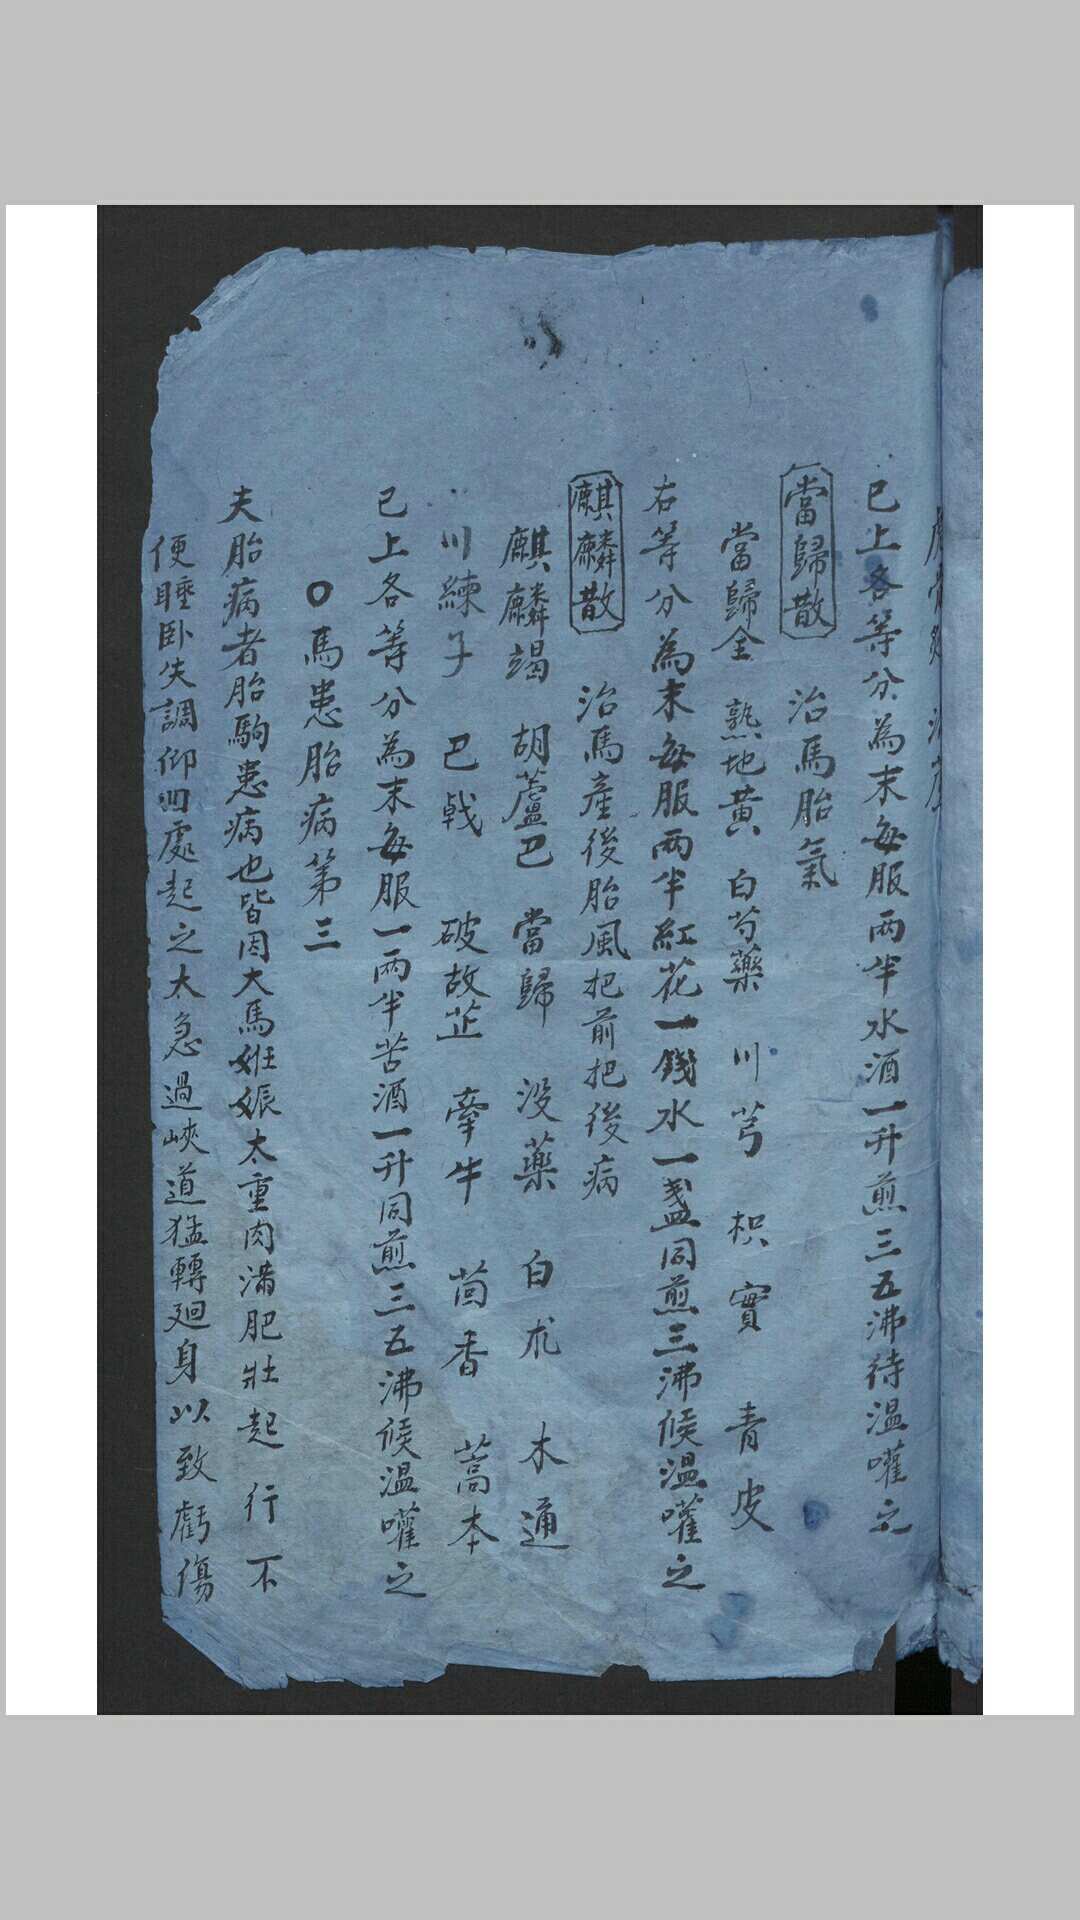 已上各等分為末每服兩半水酒一升煎三五沸待溫嚾之
當歸散　治馬胎氣
當歸全　熟地黃　白芍藥　川芎　枳實　青皮
右等分為末每服兩半紅花一錢水一盞同煎三沸候溫嚾之
麒麟散　治馬產後胎風把前把後病
麒麟竭　胡蘆巴　當歸　没藥　白朮　木通
川練子　巴戟　破故芷　牽牛　茴香　蒿本
已上各等分為末每服一兩半苦酒一升同煎三五沸候溫嚾之
○馬患胎病第三
夫胎病者胎駒患病也皆因大馬姙娠太重肉滿肥壯起行不
便睡卧失調仰凹處起之太急過峽道猛轉廻身以致虧傷